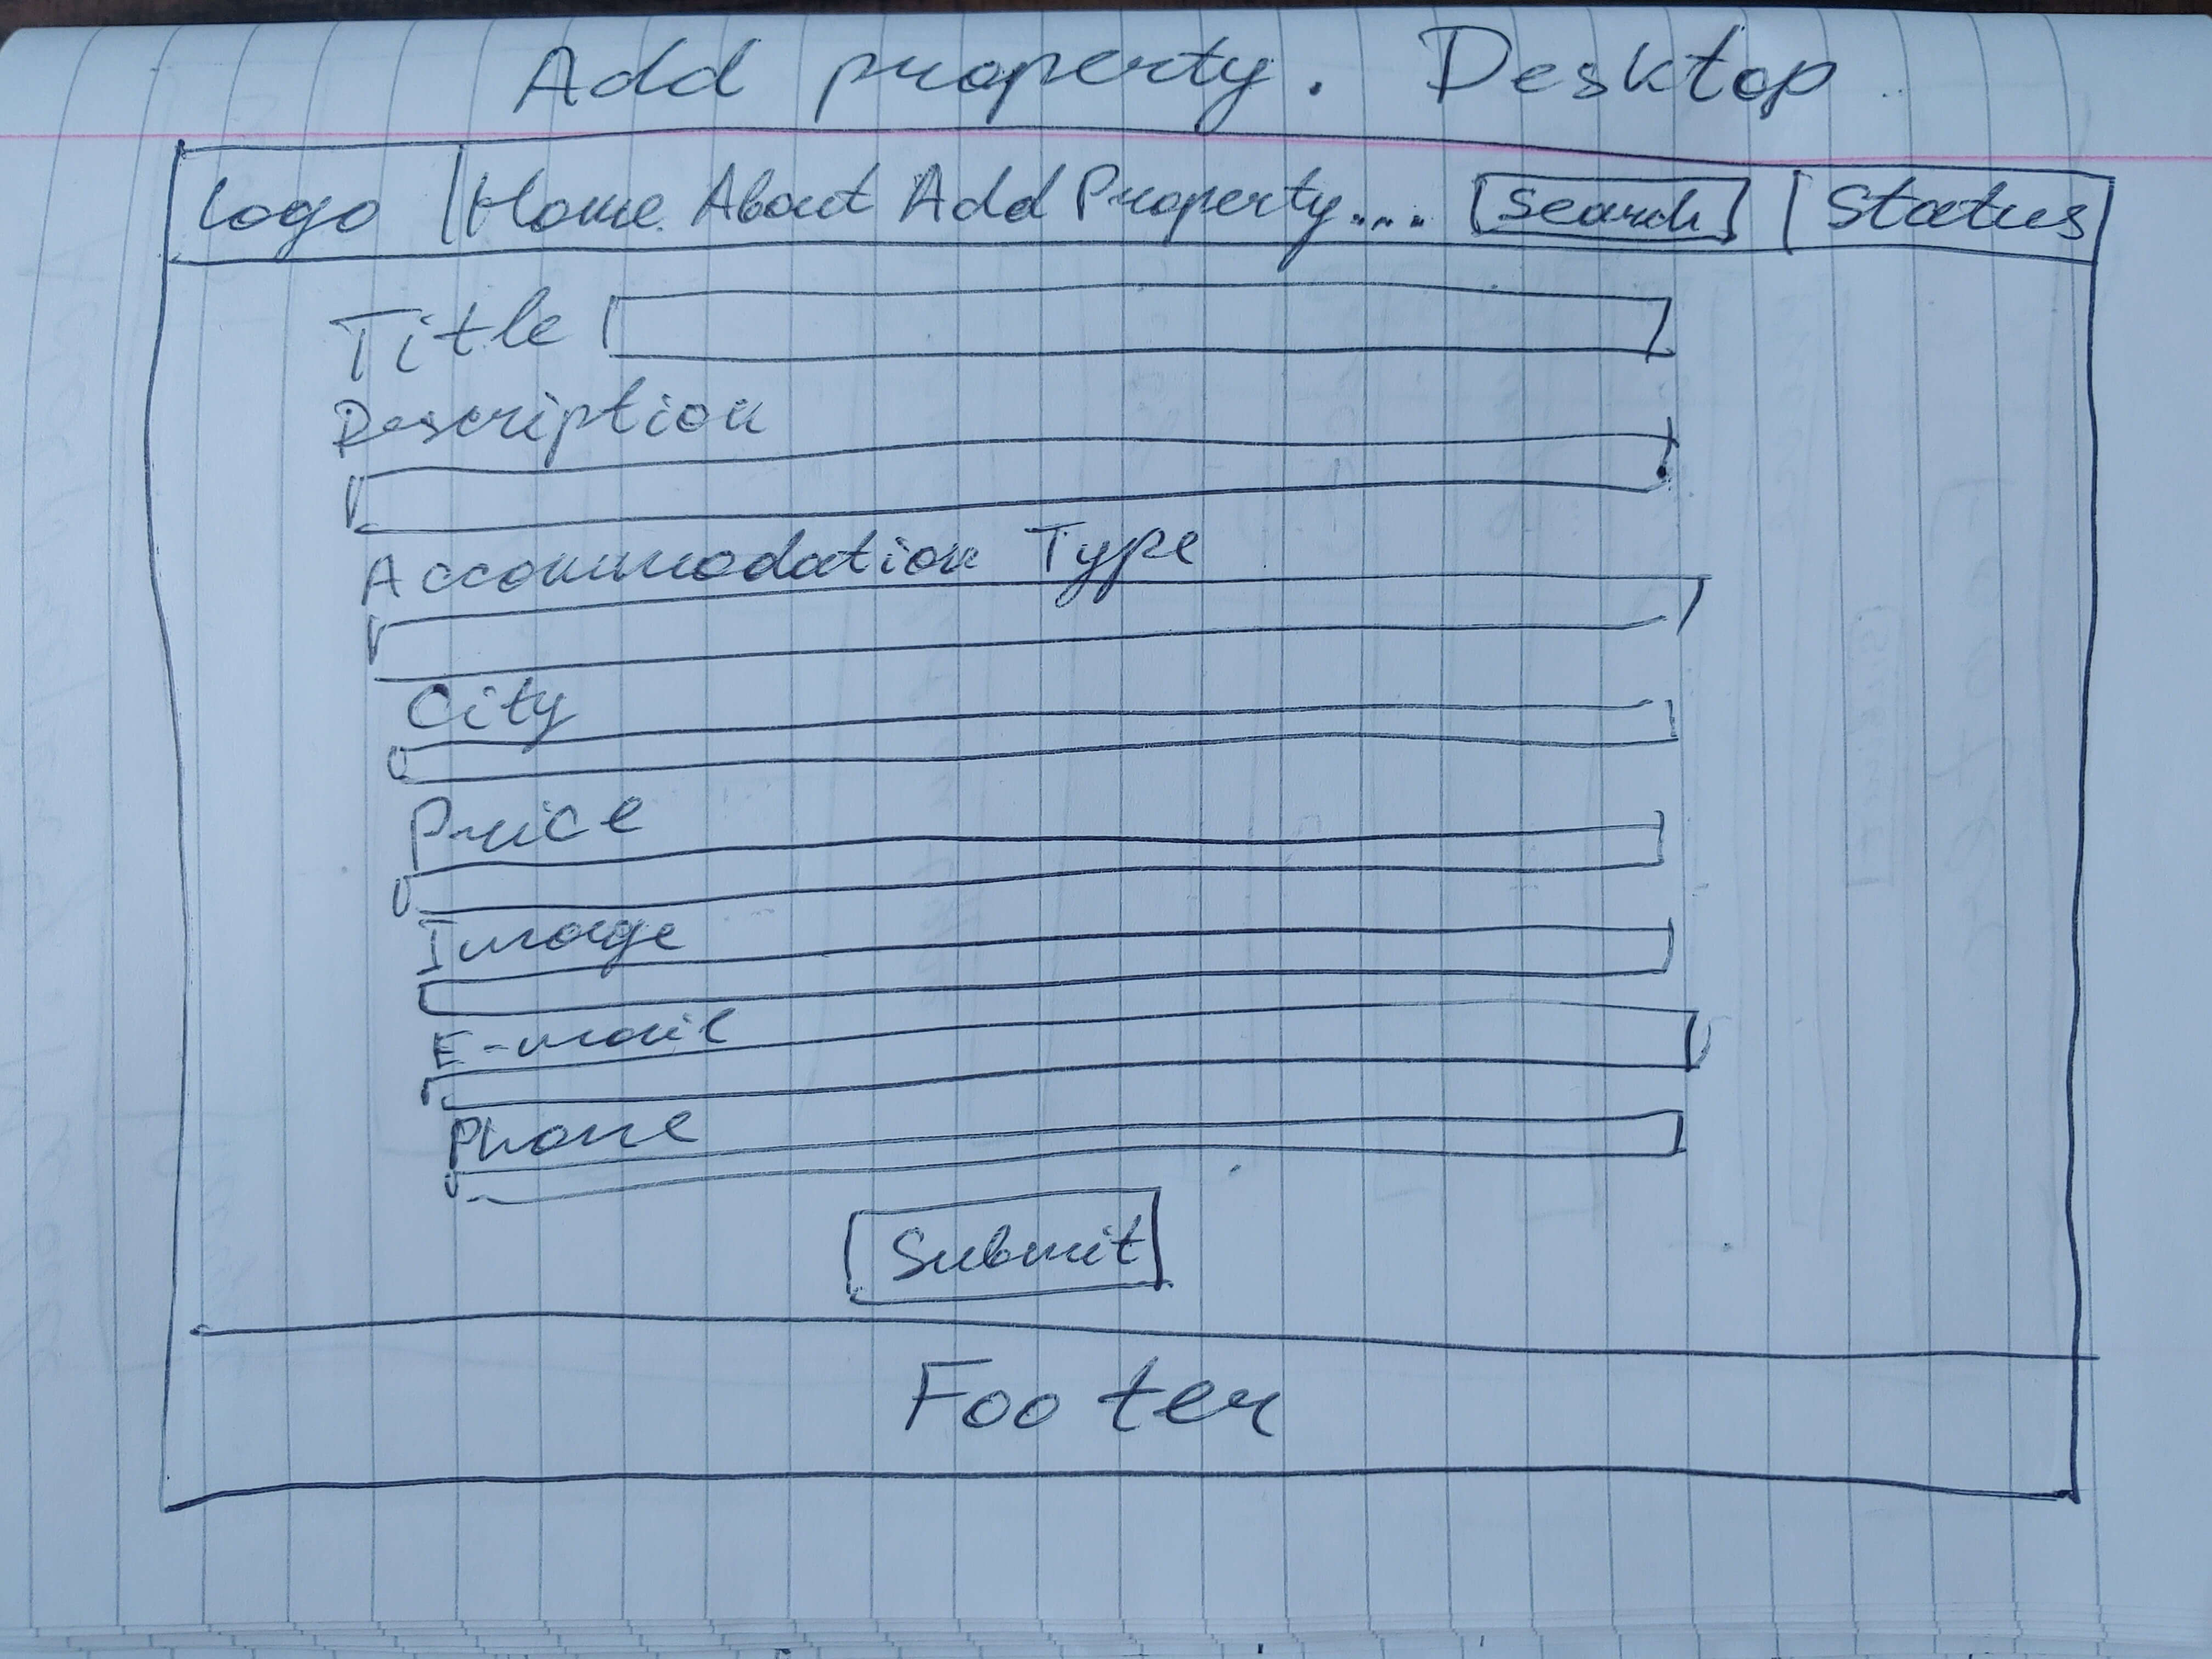 Add property. Desktop
Logo Home About Add Property.... Search Status
Title
Description
Accommodation Type
City
Price
Image
E-mail
Phone
Submit
Footer